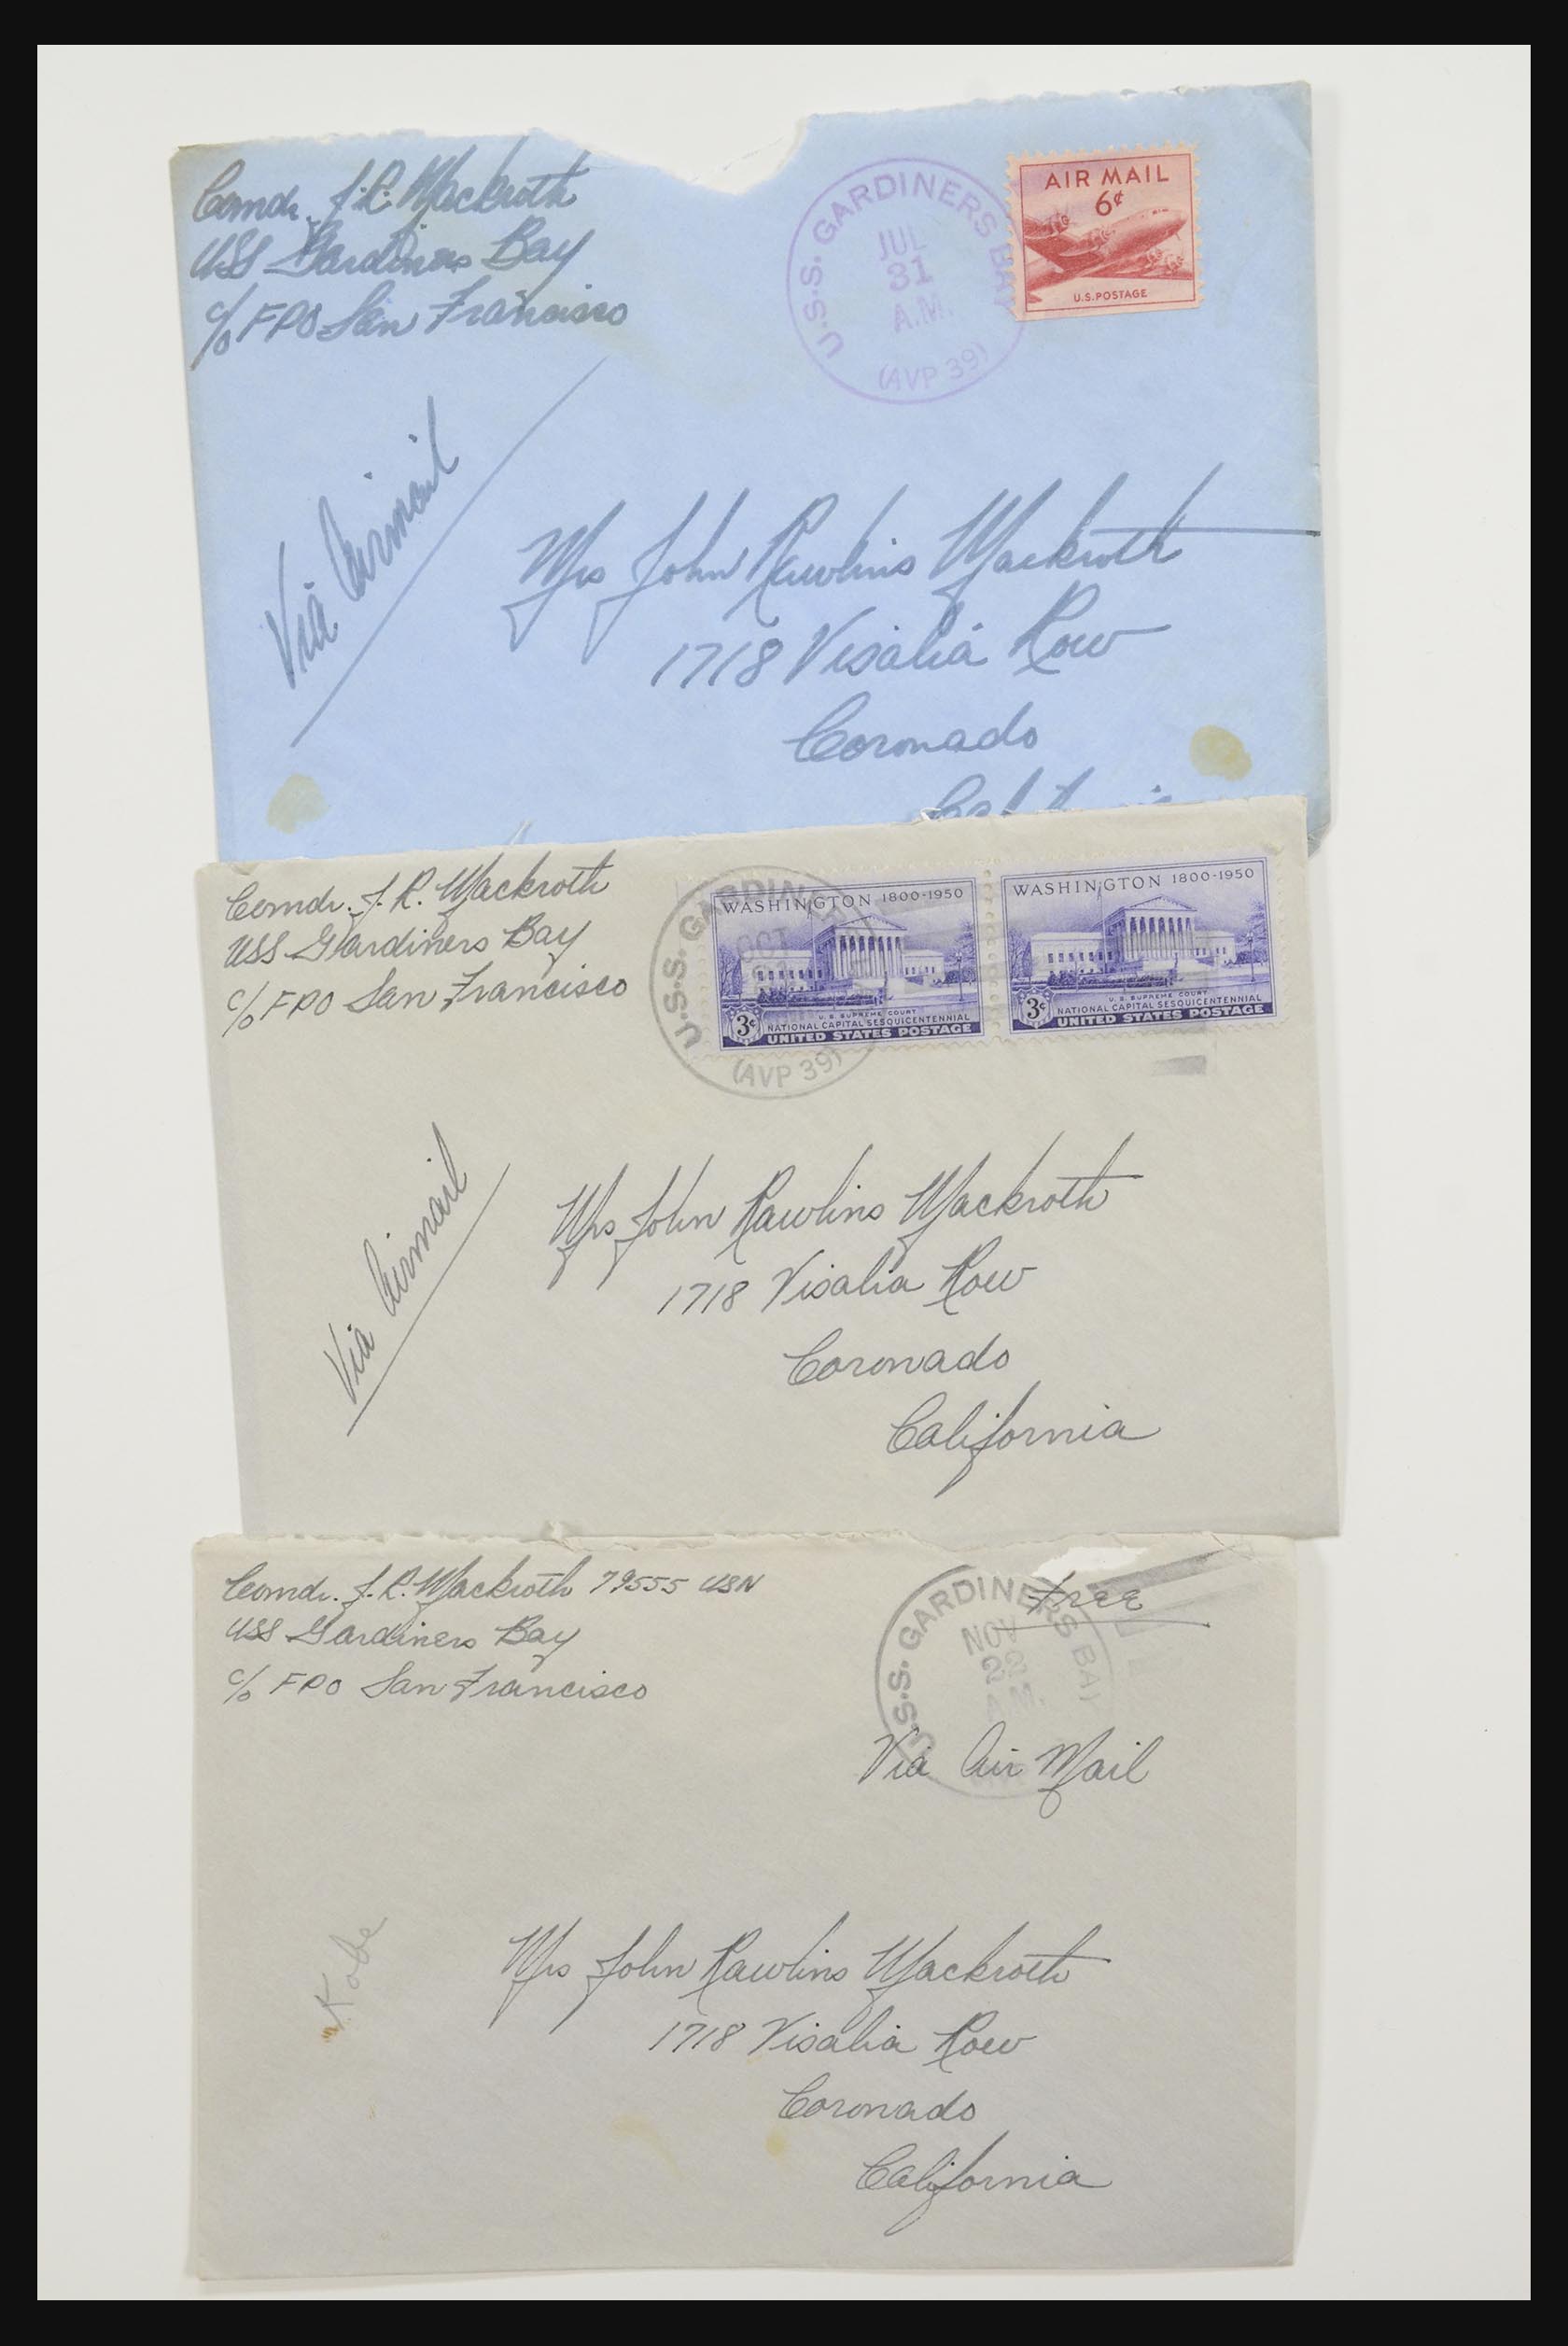 Comdr. J.R. Mackroth
USS Gardiners Bay
c/o FPO San Francisco
U.S.S. GARDINERS BAY
JUL
31
A.M.
(AVP 39)
AIR MAIL
6¢
U.S. POSTAGE
Via Airmail
Mrs John Rawlins Mackroth
1718 Visalia Row
Coronado
California
Comdr. J. R. Mackroth
USS Gardiners Bay
c/o FPO San Francisco
U.S.S. GARDINERS
OCT
(AVP 39)
WASHINGTON 1800-1950
3¢
U. S. SUPREME COURT
NATIONAL CAPITAL SESQUICENTENNIAL
UNITED STATES POSTAGE
WASHINGTON 1800-1950
3¢
U. S. SUPREME COURT
NATIONAL CAPITAL SESQUICENTENNIAL
UNITED STATES POSTAGE
Via Airmail
Mrs John Rawlins Mackroth
1718 Visalia Row
Coronado
California
Comdr. J. R. Mackroth 79555 USN
USS Gardiners Bay
c/o FPO San Francisco
Free
U.S.S. GARDINERS BAY
NOV
M.
Via Air Mail
Kobe
Mrs John Rawlins Mackroth
1718 Visalia Row
Coronado
California